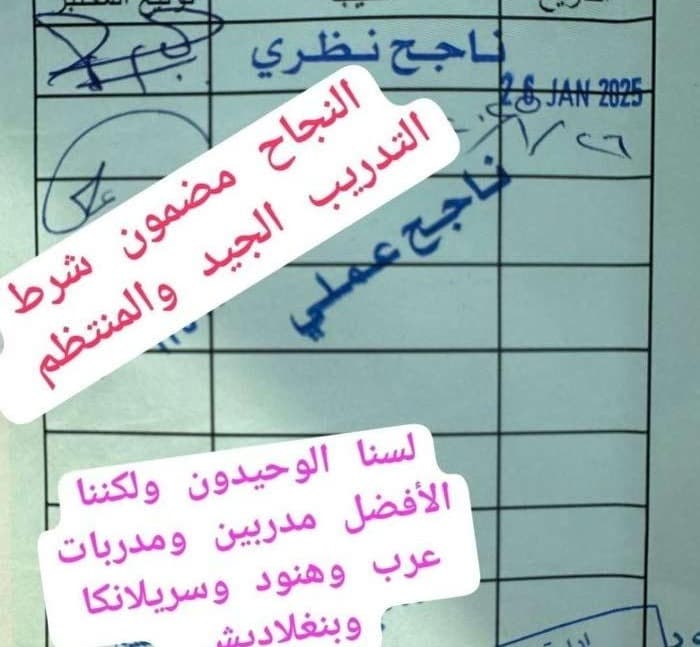 ناجح نظري
26 JAN 2025
٢٦/١
ناجح عملي
النجاح مضمون شرط
التدريب الجيد والمنتظم
لسنا الوحيدون ولكننا
الأفضل مدربين ومدربات
عرب وهنود وسريلانكا
وبنغلاديش